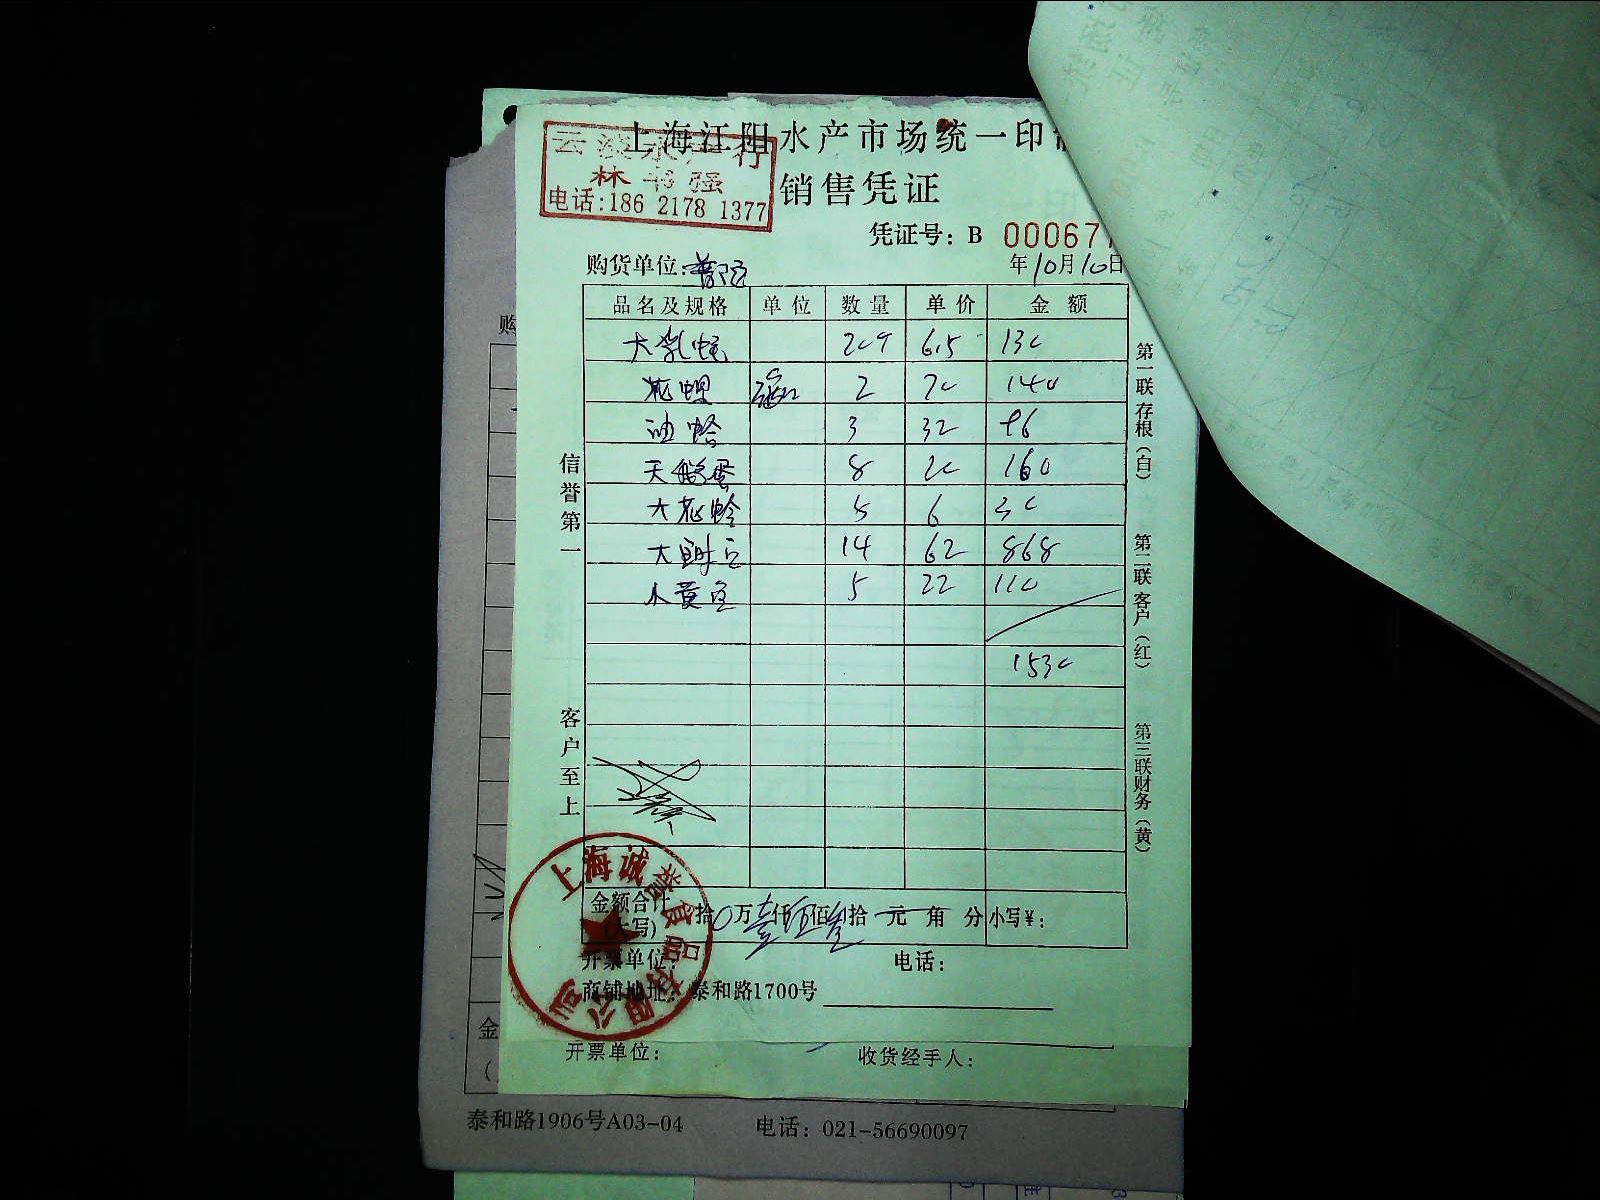 上海江阳水产市场统一印制
销售凭证
云波水产行
林书强
电话:186 2178 1377
凭证号: B 00067
购货单位:普陀
年10月10日
品名及规格 单位 数量 单价 金额
大乳蛏 20斤 6.5 130
花螺 2 70 140
油蛤 3 32 96
天鹅蛋 8 20 160
大花蛤 5 6 30
大鲜豆 14 62 868
小黄鱼 5 22 110
1530
信誉第一
客户至上
第一联存根(白)
第二联客户(红)
第三联财务(黄)
金额合计(大写) 拾0万壹仟伍佰叁拾元角分 小写¥:
开票单位: 电话:
商铺地址: 泰和路1700号
上海诚誉食品有限公司
开票单位: 收货经手人:
购
金
(
泰和路1906号A03-04 电话: 021-56690097